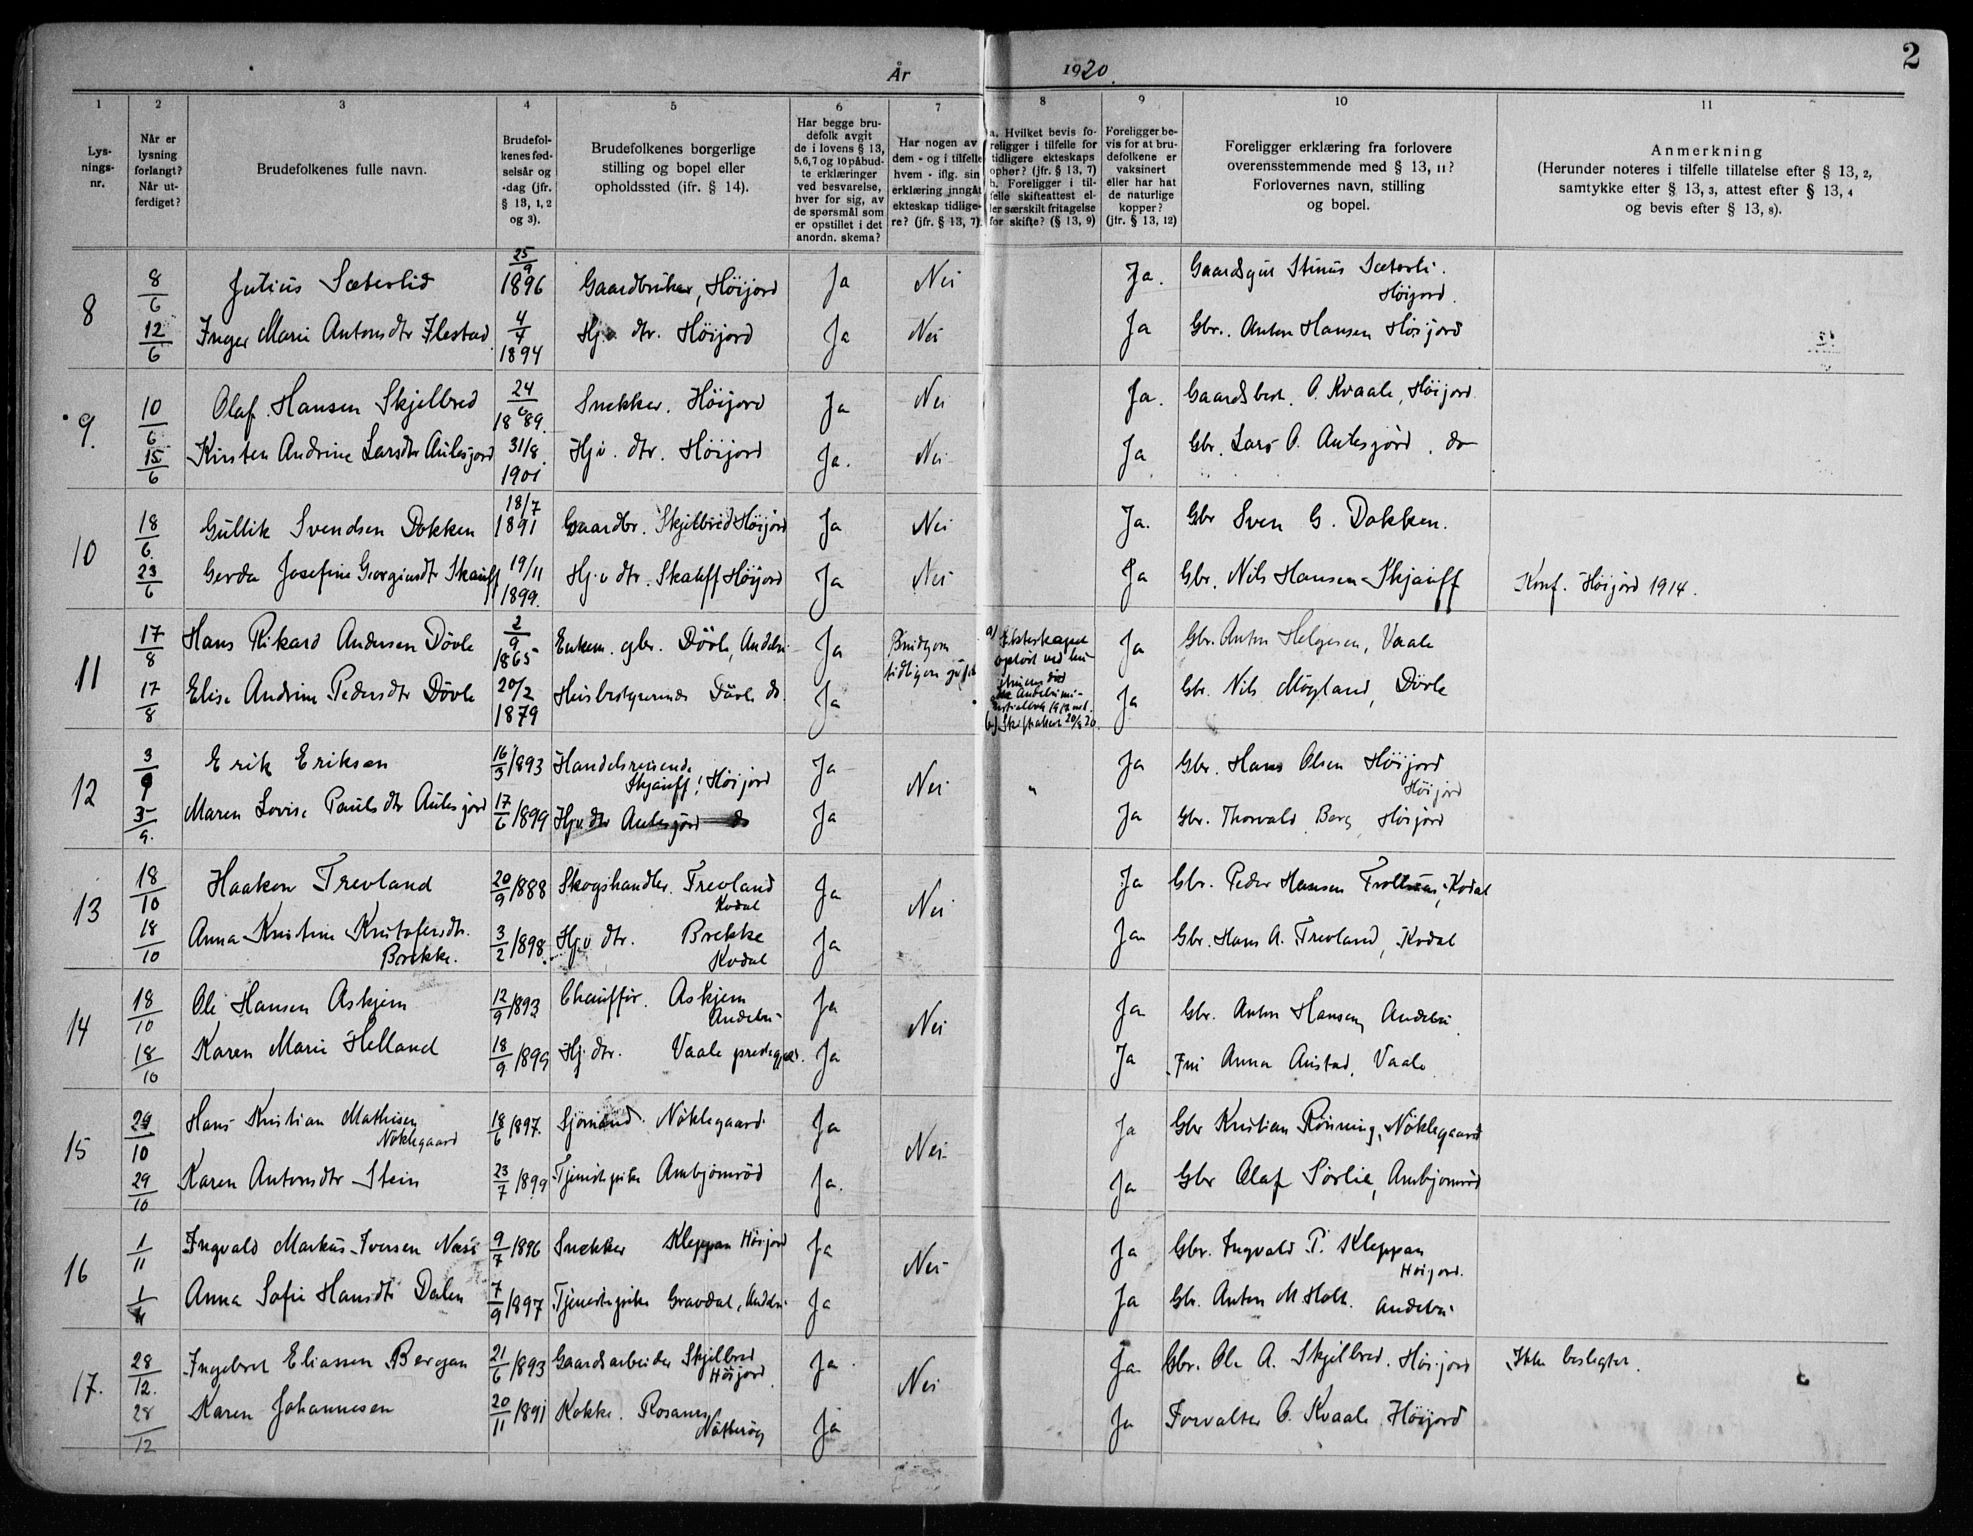 2
År 1920.
1 2 3 4 5 6 7 8 9 10 11
Lys-
nings-
nr.
Når er
lysning
forlangt?
Når ut-
ferdiget?
Brudefolkenes fulle navn.
Brudefol-
kenes fød-
selsår og
-dag (jfr.
§ 13, 1, 2
og 3).
Brudefolkenes borgerlige
stilling og bopel eller
opholdssted (jfr. § 14).
Har begge bru-
defolk avgit
de i lovens § 13,
5, 6, 7 og 10 påbud-
te erklæringer
ved besvarelse,
hver for sig, av
de spørsmål som
er opstillet i det
anordn. skema?
Har nogen av
dem - og i tilfelle
hvem - iflg. sin
erklæring inngåt
ekteskap tidlige-
re? (jfr. § 13, 7).
a. Hvilket bevis fo-
religger i tilfelle for
tidligere ekteskaps
ophør? (jfr. § 13, 7)
b. Foreligger i til-
felle skifteattest el-
ler særskilt fritagelse
for skifte? (§ 13, 9)
Foreligger be-
vis for at bru-
defolkene er
vaksinert
eller har hat
de naturlige
kopper?
(jfr. § 13, 12)
Foreligger erklæring fra forlovere
overensstemmende med § 13, 11?
Forlovernes navn, stilling
og bopel.
Anmerkning
(Herunder noteres i tilfelle tillatelse efter § 13, 2,
samtykke efter § 13, 3, attest efter § 13, 4
og bevis efter § 13, 8).
8 8/6 Julius Sæterlid 25/9 1896 Gaardbruker, Höijord Ja Nei Ja. Gaardsgut Stinus Sæterli. Höijord.
12/6 Inger Marie Antonsdtr Ilestad 4/4 1894 Hj.v. dtr. Höijord Ja Nei Ja Gbr. Anton Hansen Höijord
9. 10/6 Olaf Hansen Skjelbred 24/6 1889. Snekker. Höijord Ja Nei Ja. Gaardsbest. O. Kvaale, Höijord
15/6 Kirsten Andrine Larsdtr Aulesjord 31/8 1901 Hj.v. dtr. Höijord Ja. Nei Ja Gbr. Lars O. Aulesjörd. do
10 18/6. Gullik Svendsen Dokken 18/7 1891 Gaardbr. Skjelbred Höijord Ja Nei Ja. Gbr Sven G. Dokken.
23/6 Gerda Josefine Georginedtr Skauff 19/11 1899. Hj.v dtr. Skauff Höijord Ja Nei Ja Gbr. Nils Hansen Skjauff Konf. Höijord 1914.
11 17/8 Hans Rikard Andersen Dövle 2/9 1865 Enkem. gbr. Dövle, Andebu Ja Brudgom Ja Gbr. Anton Helgesen, Vaale
tidligere gift
a) Ekteskapet
opløst ved hu-
struens död
b) Skifteattest 20/8 20.
17/8 Elise Andrine Pedersdtr Dövle 20/2 1879 Husbestyrerinde Dövle do Ja Ja Gbr. Nils Mögland, Dövle
12 3/9 Erik Eriksen 16/3 1893 Handelsreisende Ja Nei " Ja Gbr. Hans Olsen Höijord
Skjauff, Höijord Höijord
3/9. Maren Lovise Paulsdtr Aulesjord 17/6 1899 Hj.v. dtr Aulesjörd do Ja Ja Gbr. Thorvald Berg, Höijord
13 18/10 Haakon Trevland 20/9 1888 Skogshandler. Trevland Ja Nei Ja Gbr. Peder Hansen Trollsaas, Kodal
Kodal
18/10 Anna Kristine Kristofersdtr. 3/2 1898. Hj.v dtr. Brekke Ja Ja Gbr. Hans A. Trevland, Kodal
Brekke. Kodal
14 18/10 Ole Hansen Askjem 12/9 1893 Chaufför. Askjem Ja Nei Ja Gbr. Anton Hansen, Andebu
Andebu
18/10 Karen Marie Helland 18/9 1899 Hj. dtr. Vaale prestegaard. Ja Ja Fru Anna Austad, Vaale
15 29/10 Hans Kristian Mathisen 18/6 1897. Sjömand. Nöklegaard. Ja Nei Ja Gbr Kristian Rönning, Nöklegaard
Nöklegaard
29/10 Karen Antonsdtr Stein 23/7 1899 Tjenestepike Ambjornröd Ja. Ja Gbr Olaf Sörlie, Ambjornröd
16 1/11 Ingvald Markus Iversen Næss 9/7 1896 Snekker Kleppan Höijord Ja Nei Ja Gbr. Ingvald P. Kleppan
Höijord.
1/11 Anna Sofie Hansdtr Dalen 7/9 1897 Tjenestepike Gravdal, Andebu Ja Ja Gbr. Anton M Holt. Andebu
17. 28/12. Ingebret Eliassen Bergan 21/6 1893 Gaardsarbeider Skjelbred Ja Nei Ja Gbr. Ole A. Skjelbred. Höijord Ikke beslegtet.
Höijord
28/12 Karen Johannesen 20/11 1891 Kokke. Rosanes Ja Ja Forvalter O. Kvaale Höijord
Nötteröy